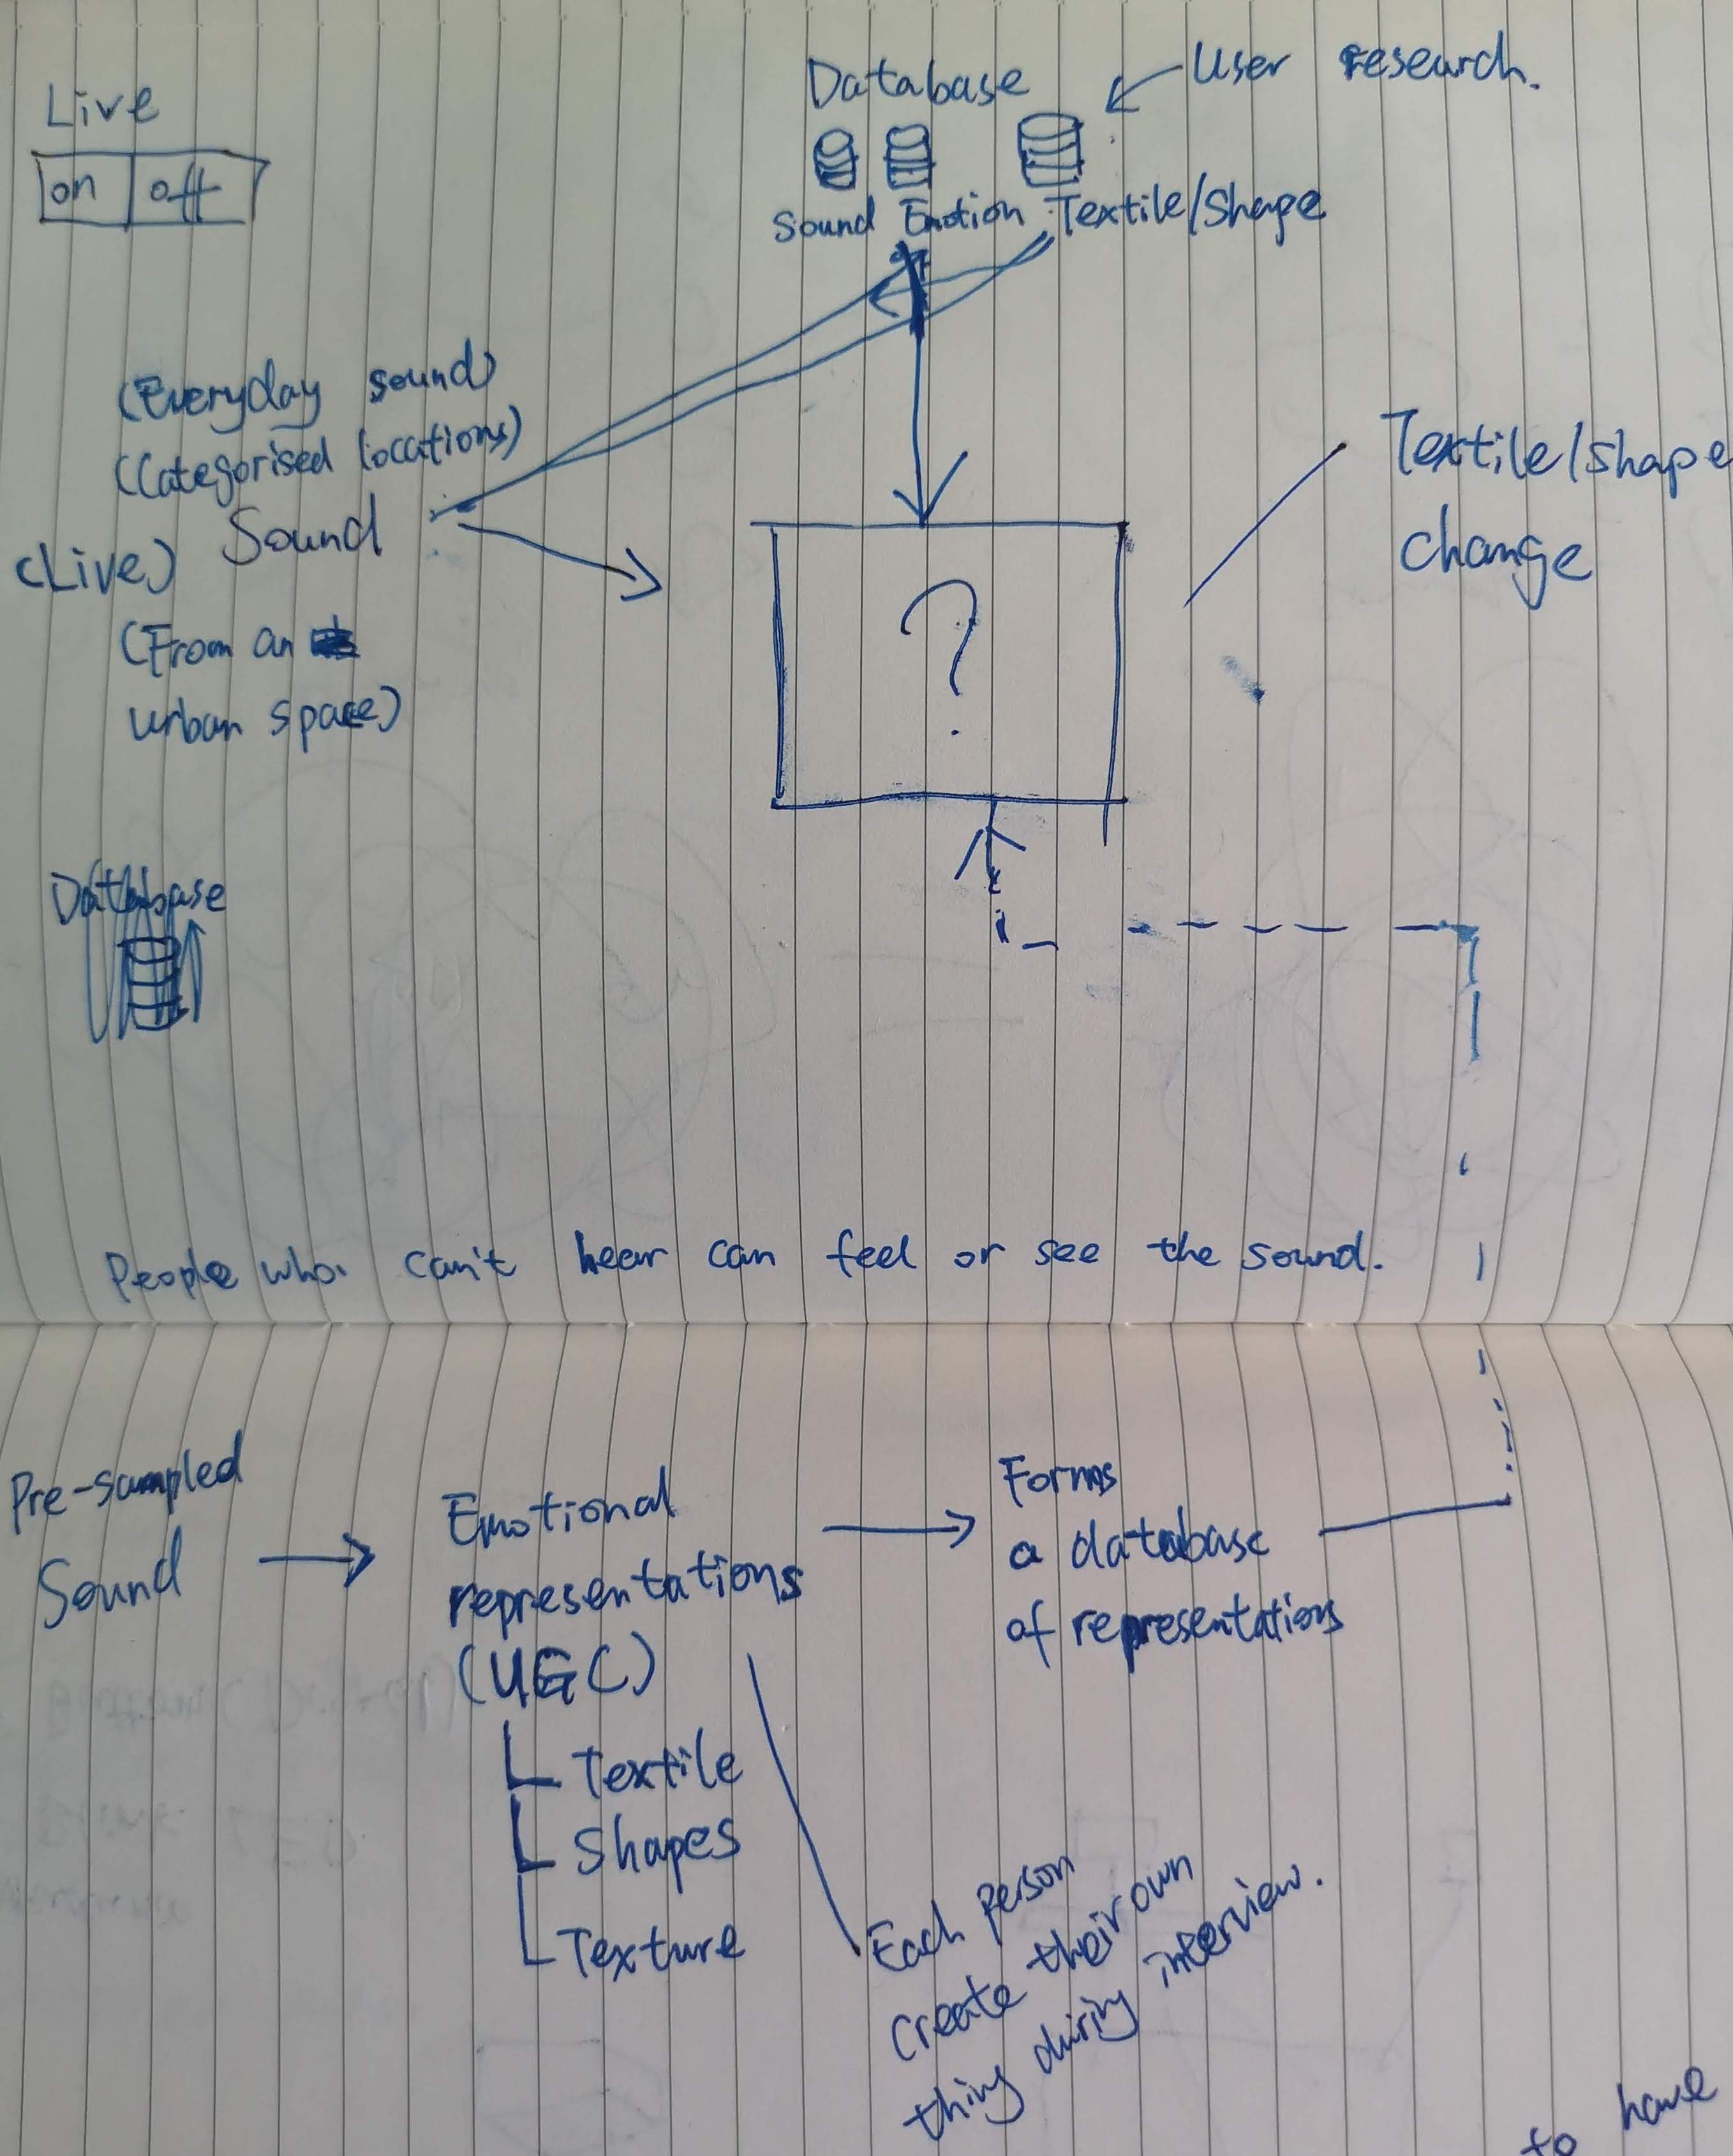 Live
on off
Database
User research.
Sound Emotion Textile/Shape
(Everyday sound)
(Categorised locations)
(Live) Sound
(From an
urban space)
?
Textile/Shape
change
Database
People who can't hear can feel or see the sound.
Pre-sampled
Sound
Emotional
representations
(UGC)
Textile
Shapes
Texture
Forms
a database
of representations
Each person
create their own
thing during interview.
to have